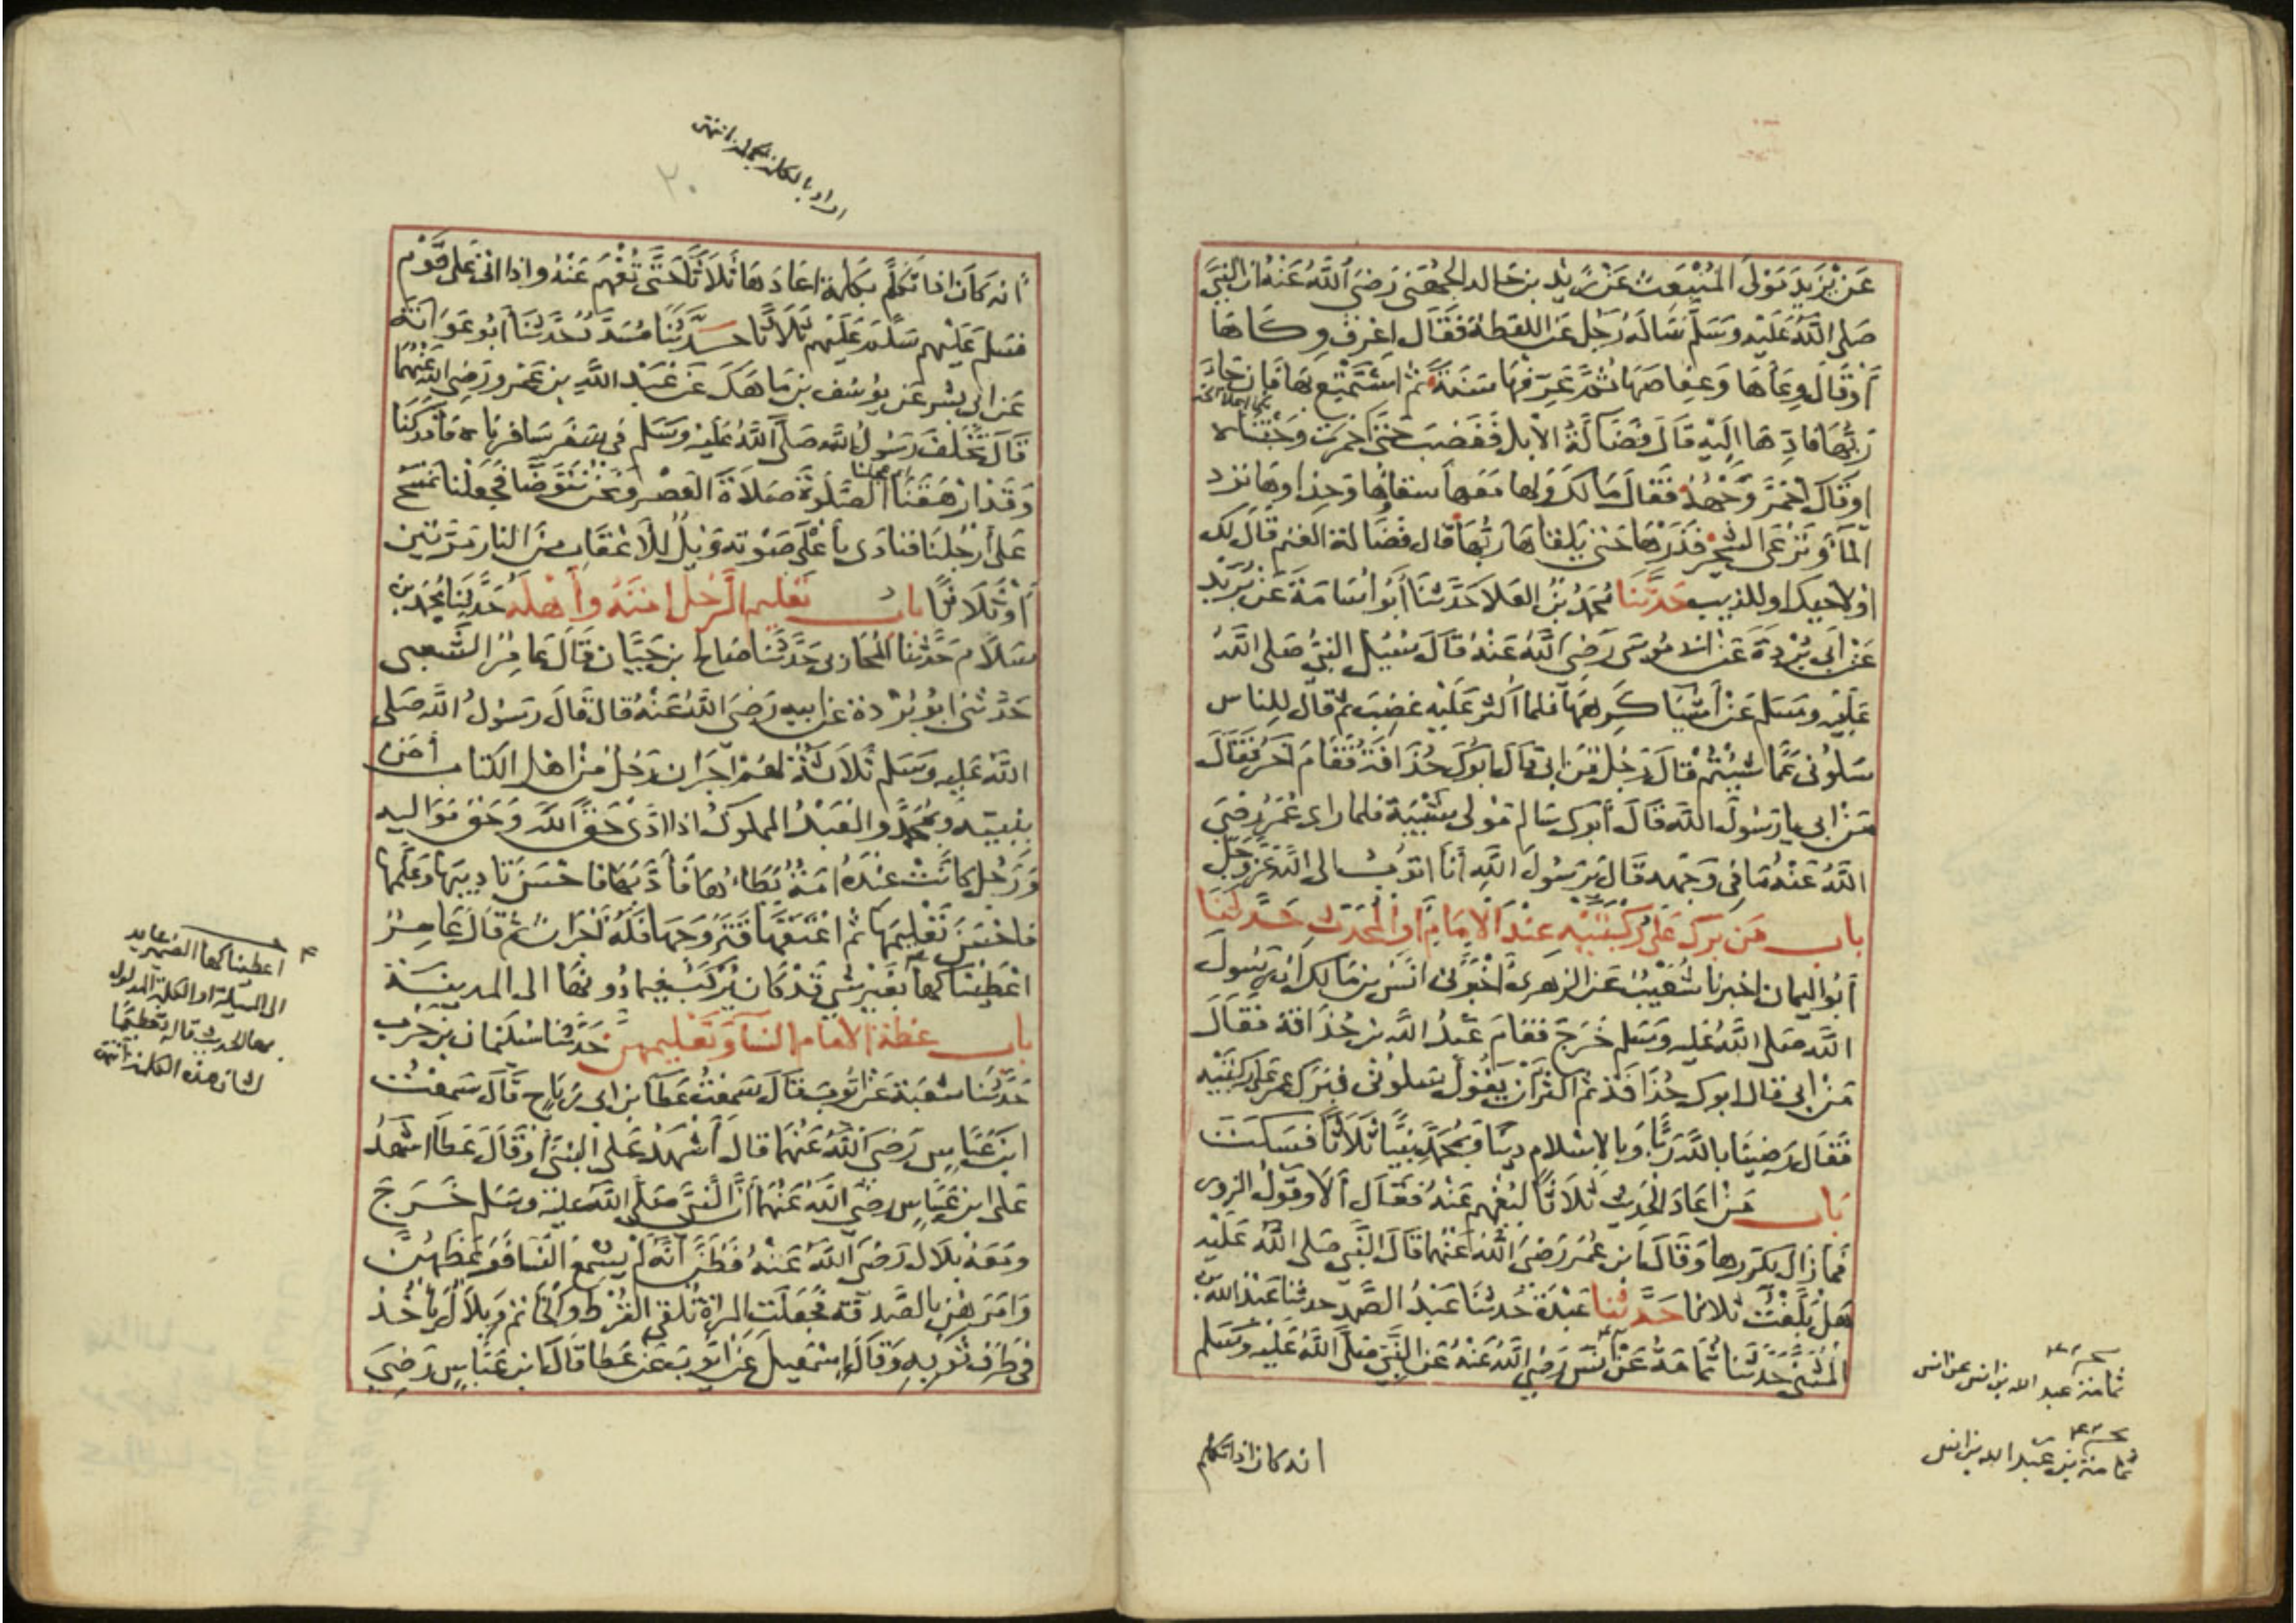 عَنْ يَزِيدَ مَوْلَى المُنْبَعِثِ عَنْ زَيْدِ بن خالد الجُهَنِيّ رَضِيَ اللَّهُ عَنْهُ ان النَّبِيَّ
صَلى اللَّهُ عَلَيْهِ وَسَلَّمَ سَالَهُ رَجُل عَنِ اللقطة فَقَالَ اعْرِفْ وِكَاهَا
أَوْقَالَ وِعَاْهَا وَعِفَاصَهَا ثُمَّ عَرِّفْهَا سَنَةً ثم اسْتَمْتِعْ بِهَا فَاِن جا
رَبُّهَا فَادِّهَا اِلَيْهِ قَالَ فَضَالَةُ الابل فَغَضِبَ حَتَّى احْمرت وَجْنَتَاه
اوقَالَ احْمَرَّ وَجْهُهُ فَقَالَ مَالَكَ وَلها مَعَها سقاؤُها وَحِذاوهَا تَرِد
المآءَ وَتَرْعَى الشجر فَذَرْهَا حَتى يَلقَاهَا رَبُّهَا قال فَضَالة الغنم قَالَ لك
اوْلاخيك اوللذيب حَدَّثَنَا مُحَمَّدُ بْنُ العَلا حَدَّثنَا أَبُو اُسَامَةَ عَنْ بُرَيْدٍ
عَنْ أَبِي بُرْدَةَ عَنْ ابى مُوسَى رَضِيَ اللَّهُ عَنْهُ قَالَ سُئِلَ النبيُّ صلى اللَّهُ
عَلَيْهِ وسَلم عَنْ أَشْيَآ كَرِهَهَا فلما اكثر عَلَيْهِ غضِبَ ثم قال لِلناس
سَلُونى عَمَّا شِئْتُمْ قَالَ رَجُل مَنْ ابى قَالَ ابُوكَ حُذَافَةُ فَقَامَ آخر فَقَالَ
مَنْ ابى يا رَسُولَ اللَّهِ قَالَ أَبُوك سَالم مَوْلى شَيْبَة فلما راى عُمَرُ رضِيَ
اللَّهُ عَنْهُ مَا في وَجْهِهِ قَالَ يَرَسُولَ اللَّهِ أَنَا اتوبُ الى اللَّهِ عَزَّوَجَلَّ
باب مَن بَرَكَ عَلَى رُكْبَتَيْهِ عنْدَ الاِمَامِ اوالمُحَدِّثِ حَدَّثَنَا
أَبُو اليمان اخبرنا شُعَيْبٌ عَن الزهرى أَخْبَرَنى انَس بن مَالِك اَن رَسُولَ
اللَّهِ صَلى اللَّهُ عَلَيهِ وَسَلم خَرَجَ فَقَامَ عَبْدُ اللَّهِ بن حُذافة فَقَالَ
مَنْ ابى قال ابوك حُذَافَة ثم اكثر اَن يَقُولَ سَلُونى فبَرَك عمر عَلى رُكبتَيْه
فَقَال رَضِينَا بِاللَّهِ رَبًّا وَبِالاِسْلام دِينًا وَبمُحَمَّدٍ نَبِيًّا ثلَاَثًا فَسَكَتَ
باب مَنْ اعَادَ الحَدِيث ثَلَاثًا لِيُفْهم عَنْهُ فَقَال ألا وقول الزور
فما زال يكَررها وَقَالَ ابن عُمَرَ رَضِيَ اللَّهُ عَنْهُما قَالَ النَّبِي صَلى اللَّهُ عَلَيْهِ
هَلْ بَلَّغْتُ ثلاثا حَدَّثنا عَبْدَةُ حَدثنَا عَبْدُ الصَّمد حدثنا عَبْدُ الله بن
المثَنى حَدَّثَنا ثُمَامَةُ عَنْ انَس رَضِيَ اللَّهُ عَنْهُ عَنِ النَّبِيِّ صَلَّى اللَّهُ عَلَيْهِ وَسَلم
ثمامة عبد الله بن انس عن انس
ثمامة بن عبد الله بن انس
انه كان اذا تكلم
بالكلمة انتهى
٢٠
أنه كَاَنَ اذا تَكَلَّمَ بِكَلِمَةٍ اعَادَهَا ثَلَاَثًا حَتَّى تُفْهَمَ عَنْهُ واذا اتى عَلى قَوْم
فسَلم عَلَيْهم سَلم عَلَيْهم ثَلَاَثًا حَدَّثَنَا مُسَدَّدٌ حَدَّثَنَا أبُو عَوَانَة
عَن ابى بشر عَن يُوسُف بن مَاهَكَ عَن عَبْد اللَّهِ بن عَمْرو رَضِيَ اللهُ عَنْهُمَا
قَالَ تَخَلفَ رَسُولُ اللَّهِ صَلَّى اللَّهُ عَلَيْهِ وَسَلم في سَفر سَافرنا ه فَأدرَكَنَا
وَقَدْ ارْهَقْنَا الصَّلَوةَ صَلاَةَ العَصْر وَنَحْنُ نَتَوَضَّا فَجَعَلْنَا نَمْسَحُ
عَلَى أَرْجُلِنَا فنادى بِأَعْلَى صَوْتِهِ وَيْلٌ لِلْأَعْقَابِ مِنَ النار مَرَّتين
أَوْثَلَاثًا باب تعْليم الرَّجُل امَتَهُ وأَهْلَه حَدَّثَنَا مُحَمَّد بن
سَلَام حَدَّثنا المُحَاربى حَدَّثَنَا صَالح بن حَيَّان قَالَ عَامِرٌ الشَّعبى
حَدَّثنى ابوبُرْدة عَن ابيهِ رَضِيَ اللَّهُ عَنْهُ قال قَالَ رَسُولُ اللَّهِ صَلى
اللَّهُ عَلَيْهِ وَسَلم ثَلاَثَةٌ لهُمْ اَجْرَان رَجُلٌ مِنْ اهْل الكتاب أمَن
بنبيّهِ وَبمحَمَّدٍ والعَبْدُ المملوك اذا ادَّى حَقَّ اللَّهِ وَحَقَّ مَوَاليه
وَرَجُل كَانَتْ عنْدَهُ امَةٌ يَطَاءُهَا فَأَدَّبَهَا فاحْسَنَ تَادِيبَهَا وَعَلَّمَهَا
فاحْسَنَ تَعْلِيمَهَا ثم اعْتَقَهَا فَتَزَوَّجَهَا فَلَهُ أجْرَان ثم قَالَ عَامِرٌ
اعْطَيْنَاكهَا بغَيْر شَيْءٍ قدْ كَان يُرْكَبُ فِيما دُونَهَا الى المدينَة
باب عِظَةِ الامام النسَآ وَتَعْلِيمهِنَّ حَدَّثنَا سُلَيْمَان بن حَرْب
حَدَّثَنَا شعْبَة عَنْ ايُّوبَ قَالَ سَمعْتُ عَطَآ بن ابى رَبَاح قَالَ سَمعْتُ
ابن عَبَّاس رَضِيَ اللَّهُ عَنْهُمَا قالَ أَشْهَدُ عَلى النبِيّ أوْقَالَ عَطَآ اشْهَدُ
عَلى ابن عَبَّاسٍ رَضِيَ اللَّهُ عَنْهُمَا أَنَّ النَّبِيَّ صَلَّى اللَّهُ عَليْهِ وَسَلم خَرَجَ
ومَعَهُ بِلاَلٌ رَضِيَ اللَّهُ عَنْهُ فَظَنَّ انَّهُ لَمْ يُسْمِع النّسَا فَوَعَظَهُنَّ
وَامَرَهُنَّ بِالصَّدَقَةِ فَجَعَلَتِ المرْاَةُ تُلقى القُرْطَ والخَاتم وَبِلَالٌ يَأْخُذُ
في طَرَفِ ثَوْبِهِ وَقَالَ اِسْمَعِيلُ عَنْ ايُّوبَ عَنْ عَطَا قَالَ ابن عَبَّاسٍ رَضِيَ
اعطيناكها الضمير عايد
الى المسيلة او الكلمة المدلول
بها الحديث قاله تعظيمًا
لشان هذه الكلمة انتهى